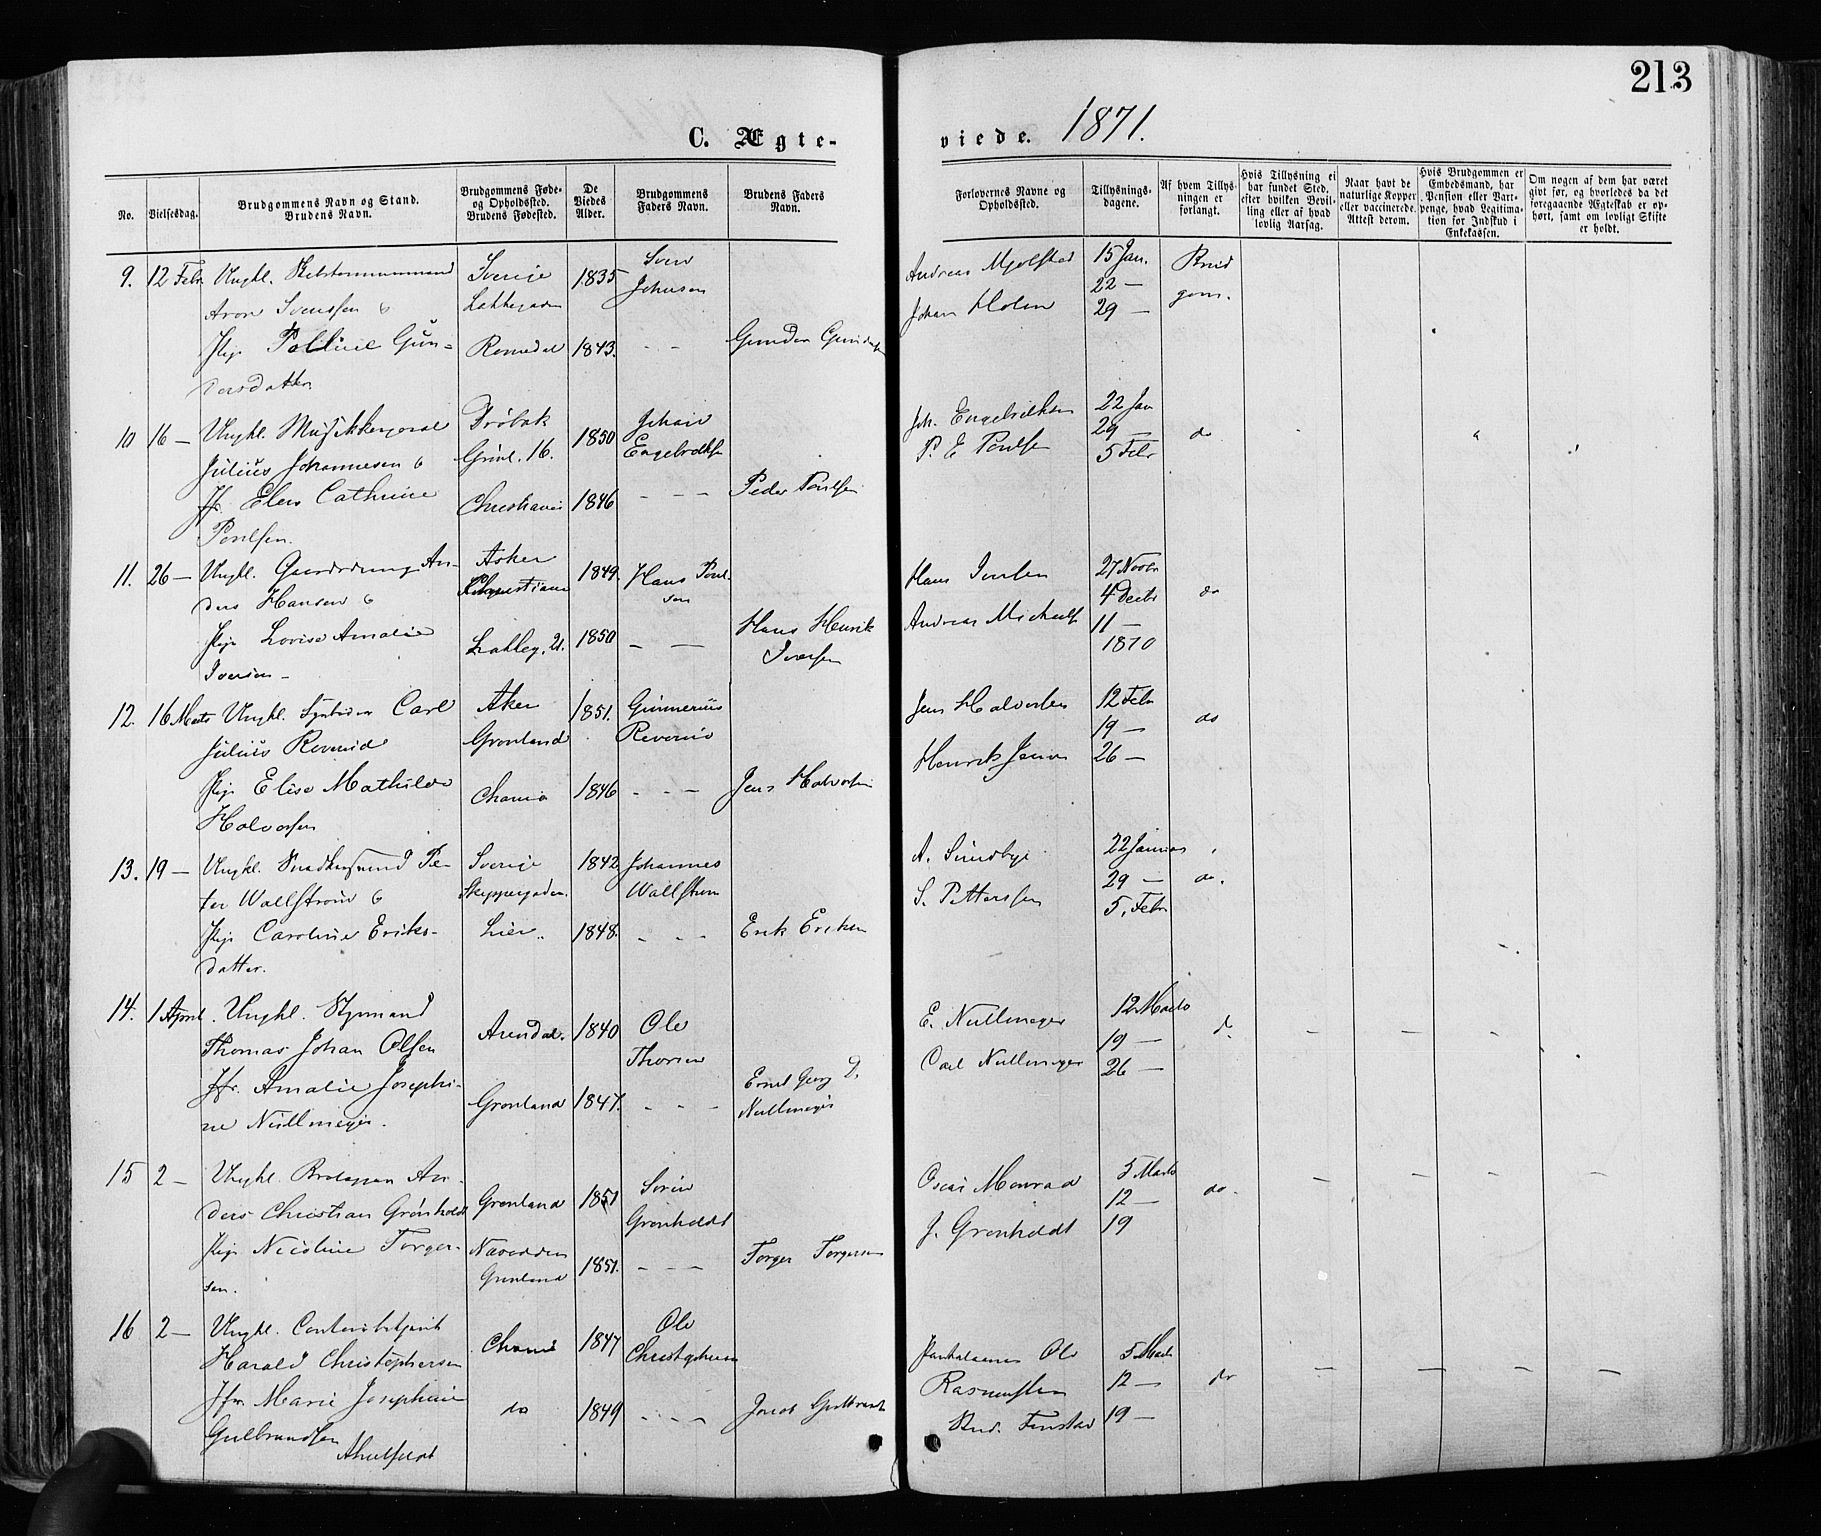 213
C. Ægte-
viede. 1871.
No.
Vielsesdag.
Brudgommens Navn og Stand.
Brudens Navn.
Brudgommens Føde-
og Opholdsted.
Brudens Fødested.
De
Viedes
Alder.
Brudgommens
Faders Navn.
Brudens Faders
Navn.
Forlovernes Navne og
Opholdsted.
Tillysnings-
dagene.
Af hvem Tillys-
ningen er
forlangt.
Hvis Tillysning ei
har fundet Sted,
efter hvilken Bevil-
ling eller af hvad
lovlig Aarsag.
Naar havt de
naturlige Kopper
eller vaccinerede.
Attest derom.
Hvis Brudgommen er
Embedsmand, har
Pension eller Vart-
penge, hvad Legitima-
tion for Indskud i
Enkekassen.
Om nogen af dem har været
givt før, og hvorledes da det
foregaaende Ægteskab er op-
hørt, samt om lovligt Skifte
er holdt.
9. 12 Febr. Ungkl. Sverige 1835 Sven Andreas Mjølstad 15 Jan. Brud
Aron Svenssen & Lakkegaden Johnsen Johan Holm 22 — gom.
29 —
Pige Pauline Gun- Romedal 1843. - - Gunder
dersdatter
10 16 — Ungkl. Drøbak 1850 Johan Joh. Engebretksen 22 Jan
Julius Johannesen & Grønl. 16. P. E. Poulsen 29 — do
5 Febr
Jfr. Elen Cathrine 1846 - - - Peder Poulsen
Poulsen.
11. 26 — Ungkl. Gaardsdreng An- Asker 1849. Hans Poul- Hans Iversen 27 Novbr
ders Hansen & sen Andreas 4 Decbr do
11 —
1870
Pige Lovise Amalie Lakkeg. 21. 1850 - - Hans Henrik
Iversen - Iversen
12. 16 Marts Ungkl. Carl Aker 1851. Gunnerius Jens Halvorsen 12 Febr
Julius Grønland Henrik 19 — do
26 —
Pige Elise Mathilde Chania 1846 - - - Jens Halvorsen
Halvorsen
13. 19 — Ungkl. Snedkersvend Pe- Sverige 1842 Johannes A. Sundbye 22 Januar
ter Wallstrøm & Skippergaden. Wallstrøm S. Pettersen 29 — do.
5. Febr
Pige Caroline Eriks- Lier. 1848. - - - Erik Eriksen
datter.
14. 1 April. Ungkl. Styrmand Arendal. 1840 Ole E. Nullmeyer 12 Marts
Thomas Johan Olsen Thorsen Carl Nullmeyer 19 — do
26 —
Jfr. Amalie Josephi- Grønland 1847. - - - Ernst Georg D.
ne Nullmeyer. Nullmeyer
15 2 — Ungkl. An- Grønland 1851 Søren Oscar Monrad 5 Marts
ders Christian Grønholdt Grønholdt J. Grønholdt 12 — do.
19
Pige Nicoline Torger- Næsodden 1851. - - - Torger Torgersen
sen. Grønland
16 2 — Ungkl. Contoirbetjent Chania 1847 Ole Ole 5 Marts
Harald Christophersen Christophersen Rasmussen 12 — do
Finstad 19 —
Jfr. Marie Josephine do 1849 - - - Jacob
Gulbrandsen